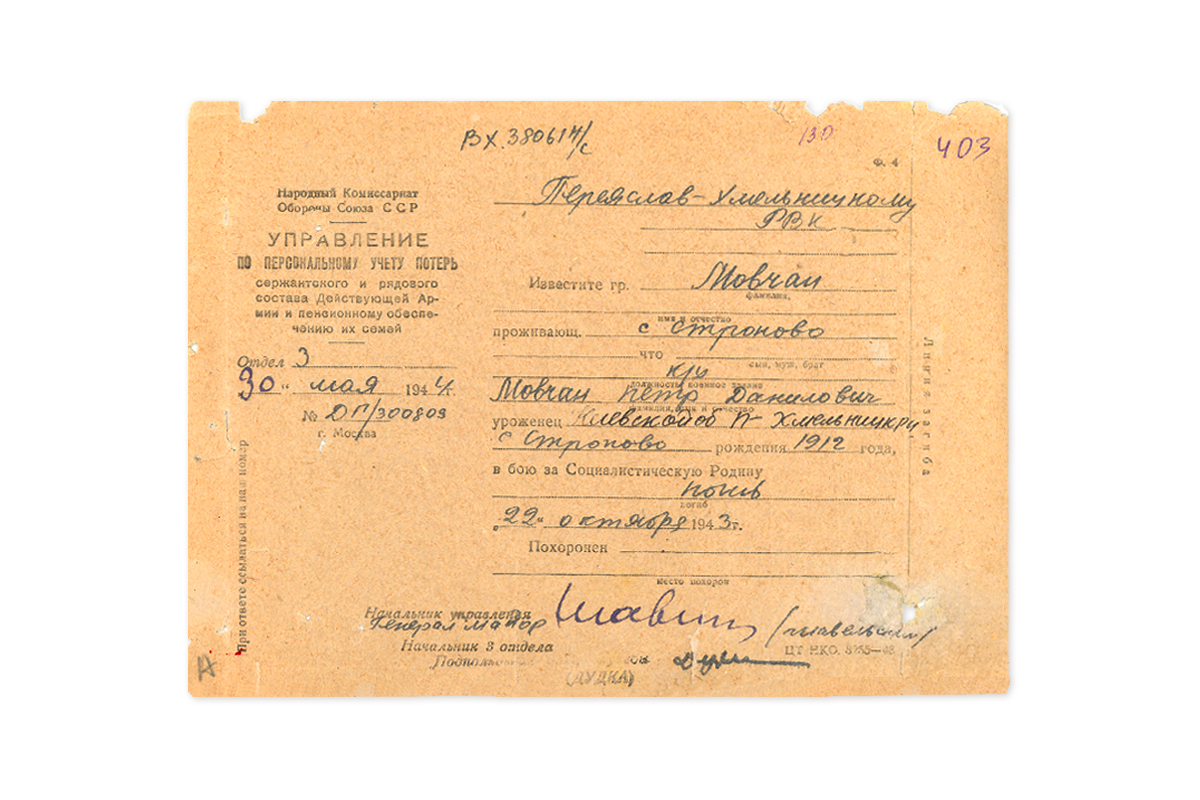 Вх. 380617/с
130
403
Ф. 4
Народный Комиссариат
Обороны Союза ССР
УПРАВЛЕНИЕ
ПО ПЕРСОНАЛЬНОМУ УЧЕТУ ПОТЕРЬ
сержантского и рядового
состава Действующей Ар-
мии и пенсионному обеспе-
чению их семей
Отдел 3
30 " мая 1944г.
№ ДГ/300809
г. Москва
При ответе ссылаться на наш номер
Переяслав-Хмельницкому
РВК
Известите гр. Мовчан
фамилия,
имя и отчество
проживающ. с Строково
что
сын, муж, брат
кр/ц
должность военное звание
Мовчан Петр Данилович
фамилия, имя и отчество
уроженец Киевской об П-Хмельницкий
с Строково рождения 1912 года,
в бою за Социалистическую Родину
погиб
погиб
"22" октября 1943г.
Похоронен
место похорон
Линия загиба
Начальник управления
Генерал майор (Шавельский)
Начальник 3 отдела
ЦТ НКО. 3755—43
(ДУДКА)
А